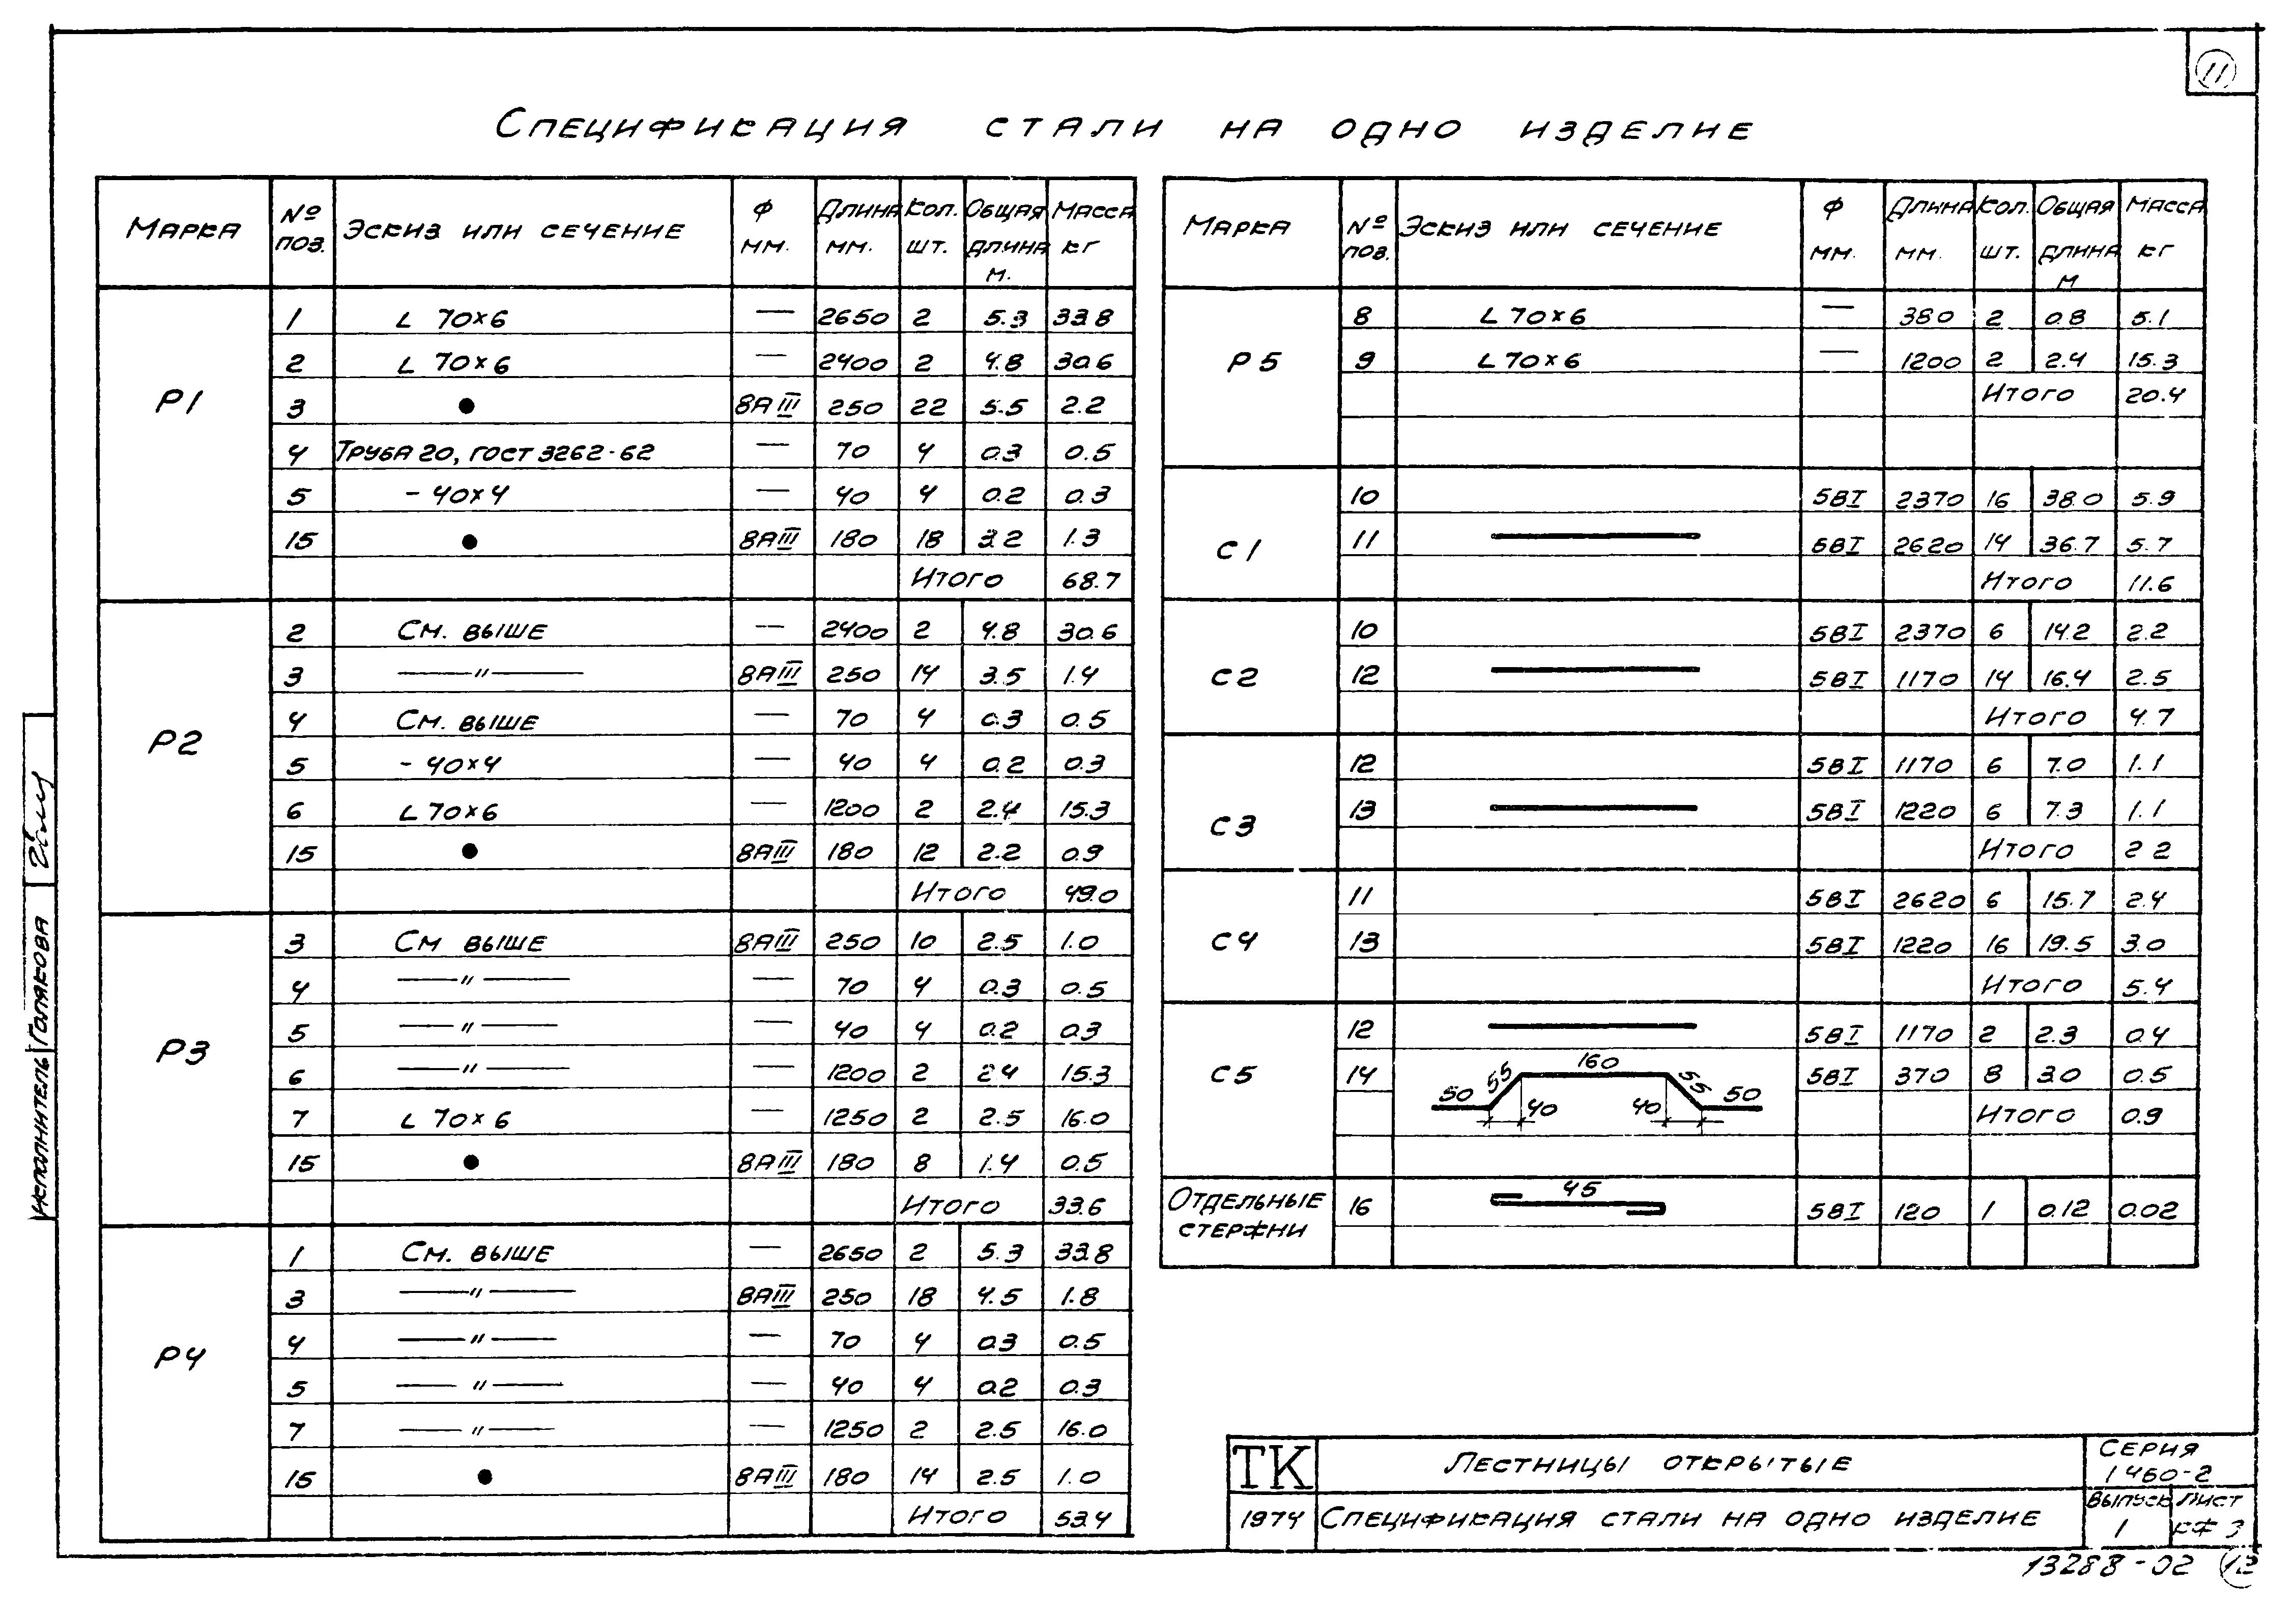 11
Спецификация стали на одно изделие
Марка № поз. Эскиз или сечение Ф мм. Длина мм. Кол. шт. Общая длина м. Масса кг
Р1
1 L 70×6 — 2650 2 5.3 33.8
2 L 70×6 — 2400 2 4.8 30.6
3 ● 8АIII 250 22 5.5 2.2
4 Труба 20, гост 3262-62 — 70 4 0.3 0.5
5 - 40×4 — 40 4 0.2 0.3
15 ● 8АIII 180 18 3.2 1.3
Итого 68.7
Р2
2 См. выше — 2400 2 4.8 30.6
3 —"— 8АIII 250 14 3.5 1.4
4 См. выше — 70 4 0.3 0.5
5 - 40×4 — 40 4 0.2 0.3
6 L 70×6 — 1200 2 2.4 15.3
15 ● 8АIII 180 12 2.2 0.9
Итого 49.0
Р3
3 См выше 8АIII 250 10 2.5 1.0
4 —"— — 70 4 0.3 0.5
5 —"— — 40 4 0.2 0.3
6 —"— — 1200 2 2.4 15.3
7 L 70×6 — 1250 2 2.5 16.0
15 ● 8АIII 180 8 1.4 0.5
Итого 33.6
Р4
1 См. выше — 2650 2 5.3 33.8
3 —"— 8АIII 250 18 4.5 1.8
4 —"— — 70 4 0.3 0.5
5 —"— — 40 4 0.2 0.3
7 —"— — 1250 2 2.5 16.0
15 ● 8АIII 180 14 2.5 1.0
Итого 53.4
Марка № поз. Эскиз или сечение Ф мм. Длина мм. Кол. шт. Общая длина м Масса кг
Р5
8 L 70×6 — 380 2 0.8 5.1
9 L 70×6 — 1200 2 2.4 15.3
Итого 20.4
С1
10 5ВI 2370 16 38.0 5.9
11 5ВI 2620 14 36.7 5.7
Итого 11.6
С2
10 5ВI 2370 6 14.2 2.2
12 5ВI 1170 14 16.4 2.5
Итого 4.7
С3
12 5ВI 1170 6 7.0 1.1
13 5ВI 1220 6 7.3 1.1
Итого 2 2
С4
11 5ВI 2620 6 15.7 2.4
13 5ВI 1220 16 19.5 3.0
Итого 5.4
С5
12 5ВI 1170 2 2.3 0.4
14 50 55 160 55 50 5ВI 370 8 3.0 0.5
40 40
Итого 0.9
Отдельные стержни
16 45 5ВI 120 1 0.12 0.02
ТК Лестницы открытые Серия 1 460-2
1974 Спецификация стали на одно изделие Выпуск 1 Лист КФ 3
13288-02 12
Исполнитель Голякова